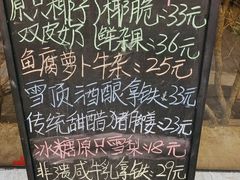 原只椰子椰脆 33元
双皮奶 鲜杂果 36元
鱼腐萝卜牛杂 25元
雪顶酒酿拿铁 33元
传统甜醋猪脚姜 23元
冰糖原只雪梨 18元
非遗咸牛乳拿铁 29元